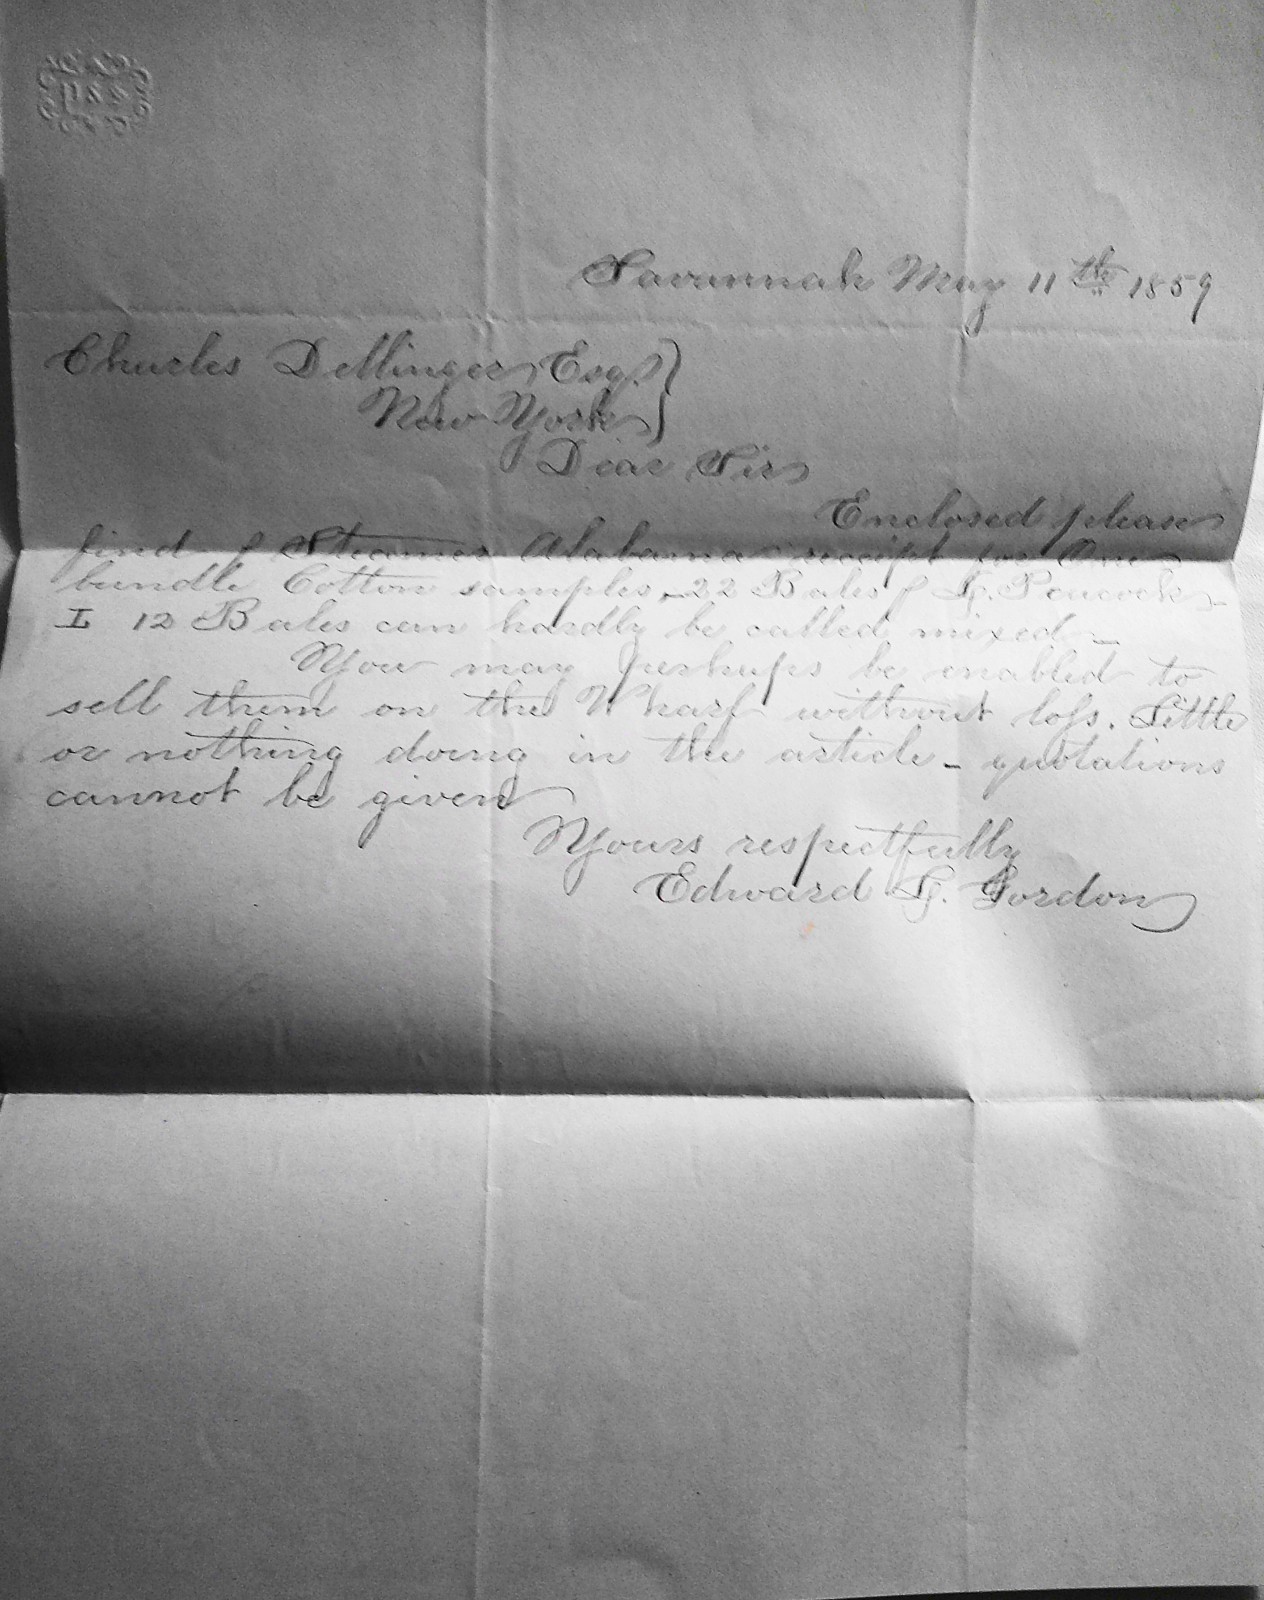 P & S
Savannah May 11th 1859
Charles Dellinger Esq.
New York
Dear Sir
Enclosed please
find Steamer Alabama receipt for One
bundle Cotton samples - 22 Bales L. Peacock -
I 12 Bales can hardly be called mixed -
You may perhaps be enabled to
sell them on the Wharf without loss. Little
or nothing doing in the article - quotations
cannot be given
Yours respectfully
Edward L. Gordon